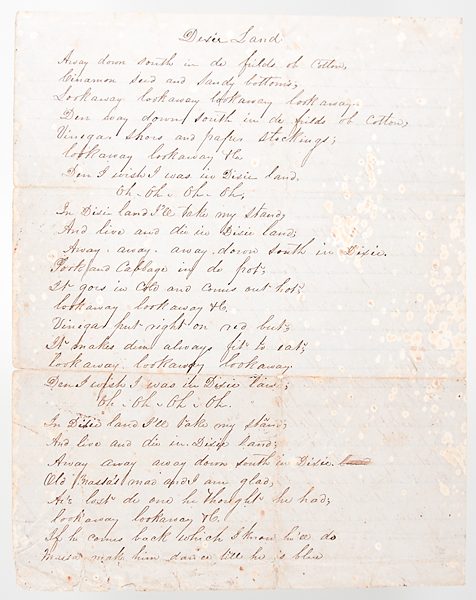 Dixie Land
Away down south in de fields ob Cotton,
Cinamon seed and Sandy bottoms;
Lookaway lookaway lookaway lookaway.
Den way down south in de fields ob Cotton,
Vinegar shoes and paper stockings;
lookaway lookaway &c
Den I wish I was in Dixie land.
Oh. Oh. Oh. Oh,
In Dixie land I'll take my stand,
And live and die in Dixie land;
Away. away. away. down south in Dixie.
Pork and Cabbage in de pot;
It goes in Cold and Comes out hot
lookaway lookaway &c.
Vinegar put right on red
It makes dem always fit to eat;
lookaway. lookaway lookaway
Den I wish I was in Dixie
Oh. Oh. Oh. Oh.
In Dixie land I'll take my stand;
And live and die in Dixie land;
Away away away down south in Dixie
Old Massa's mad and I am glad,
lost de one he thought he had;
lookaway lookaway &c.
If he comes back which I know he'll do
Massa make him dance till he is blue